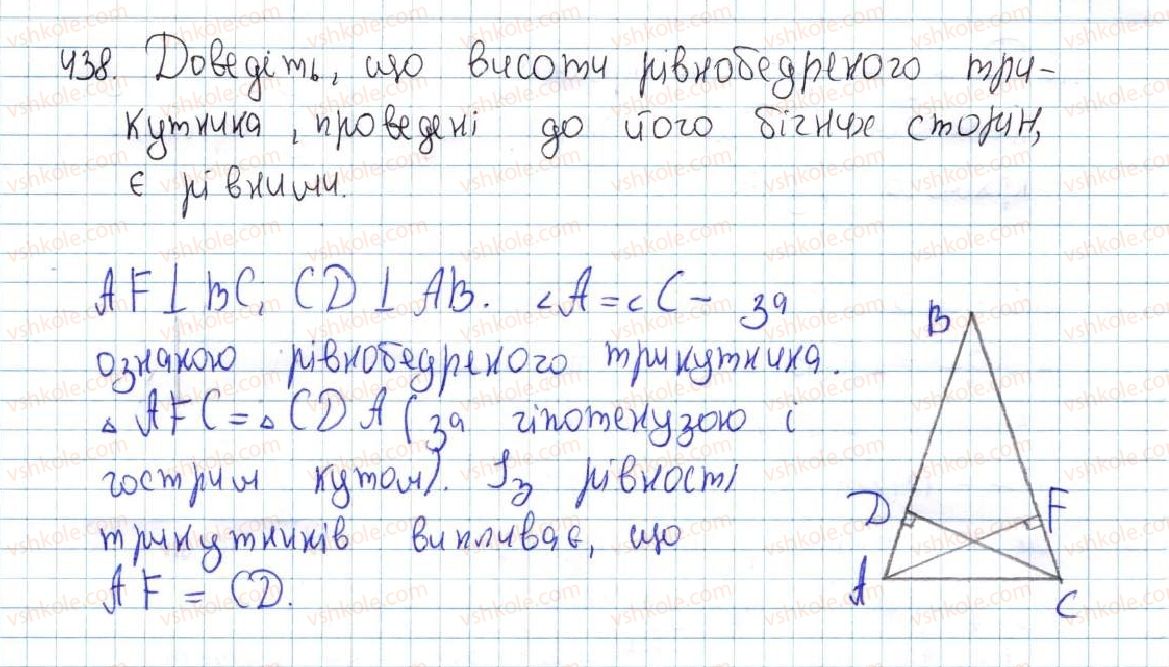 438. Доведіть, що висоти рівнобедреного три-
кутника, проведені до його бічних сторін,
є рівними.
AF⊥BC, CD⊥AB. ∠A=∠C - за
ознакою рівнобедреного трикутника.
△AFC=△CDA (за гіпотенузою і
гострим кутом). Із рівності
трикутників випливає, що
AF = CD.
B
D F
A C